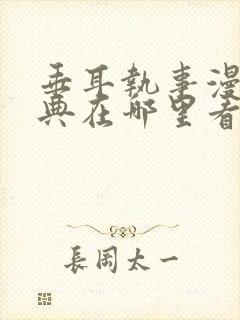 垂耳執事漫
典在哪里看
長岡太一